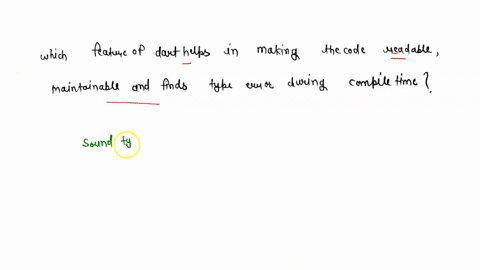 which feature of dart helps in making the code readable,
maintainable and finds type error during compile time?
Sound ty